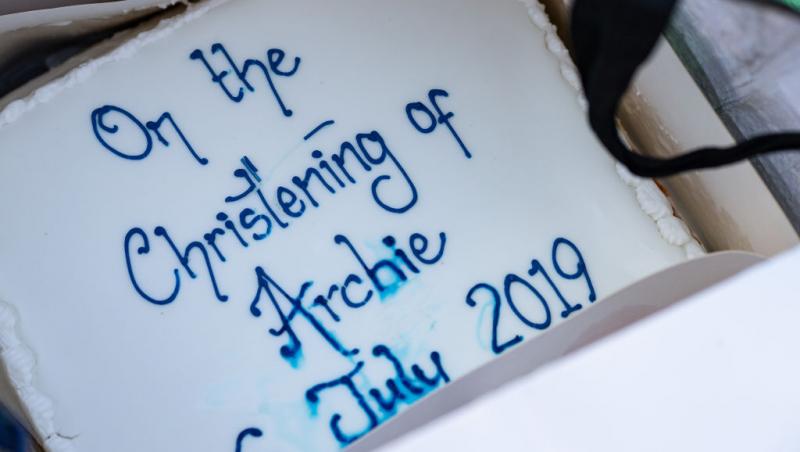 On the
Christening of
Archie
July 2019